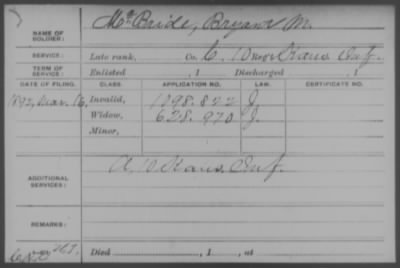 NAME OF SOLDIER: McBride, Bryant M.
SERVICE: Late rank, Co. C, 10 Reg't Kans. Inf.
TERM OF SERVICE: Enlisted , 1 Discharged , 1
DATE OF FILING. CLASS. APPLICATION NO. LAW. CERTIFICATE NO.
1892, Mar. 16, Invalid, 1098.822 J.
Widow, 628.970 J.
Minor,
ADDITIONAL SERVICES: A. 10 Kans. Inf.
REMARKS:
Died , 1 , at